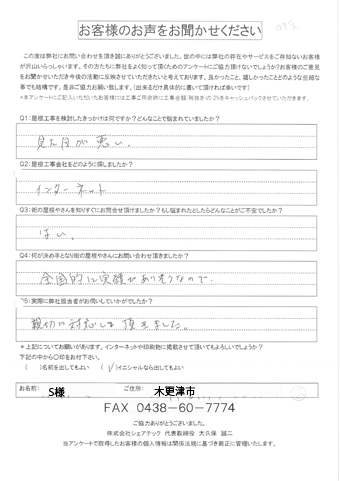 お客様のお声をお聞かせください
この度は弊社にお問い合わせを頂き誠にありがとうございました。世の中には弊社の存在やサービスをご存知ないお客様
が沢山いらっしゃいます。その方たちに弊社をよく知って頂くためのアンケートにご協力頂けないでしょうか?お客様のご意見
をお聞かせいただき今後の活動に反映させていただきたいと考えております。良かったこと、嬉しかったことどのような些細な
事でも結構です。是非ご協力お願い致します。(出来るだけ具体的に書いて頂ければ幸いです)
*本アンケートにご記入いただいたお客様には工事ご用命時に工事金額(税抜き)の2%をキャッシュバックさせていただきます。
Q1:屋根工事を検討したきっかけは何ですか?どんなことで悩まれていましたか?
見た目が悪い.
Q2:屋根工事会社をどのように探しましたか?
インターネット
Q3:街の屋根やさんを知りすぐにお問合せ頂けましたか?もし悩まれたとしたらどんなことがご不安でしたか?
はい.
Q4:何が決め手となり街の屋根やさんにお問い合わせ頂きましたか?
全国的に実績がありそうなので.
Q5:実際に弊社担当者がお伺いしていかがでしたか?
親切に対応して頂きました.
*上記についてお願いがあります。インターネットや印刷物に掲載させて頂いてもよろしいでしょうか?
下記の中から〇印をお付下さい。
( )名前を出してもよい ( ✓ )イニシャルなら出してもよい
お名前: S様 ご住所: 木更津市
FAX 0438-60-7774
ご協力ありがとうございました。
株式会社シェアテック 代表取締役 大久保 誠二
当アンケートで取得したお客様の個人情報は関係法規に基づき厳正に管理いたします。